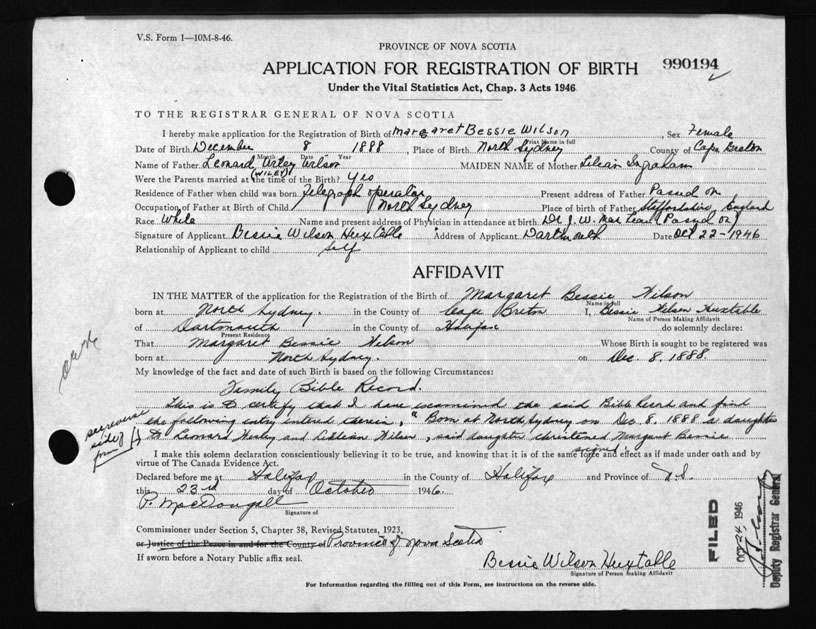 V.S. Form 1—10M-8-46.
PROVINCE OF NOVA SCOTIA
APPLICATION FOR REGISTRATION OF BIRTH
990194
Under the Vital Statistics Act, Chap. 3 Acts 1946
TO THE REGISTRAR GENERAL OF NOVA SCOTIA
I hereby make application for the Registration of Birth of Margaret Bessie Wilson, Sex Female
Print Name in full
Date of Birth December 8 1888, Place of Birth North Sydney County of Cape Breton
Month Date Year
Name of Father Leonard Wilson MAIDEN NAME of Mother Lilian Ingraham
(WILEY)
Were the Parents married at the time of Birth? Yes
Residence of Father when child was born Telegraph operator Present address of Father Passed on
Occupation of Father at Birth of Child North Sydney Place of birth of Father Staffordshire, England
Race White Name and present address of Physician in attendance at birth Dr J. W. (Passed on)
Signature of Applicant Bessie Wilson Huxtable Address of Applicant Dartmouth Date Oct 22-1946
Relationship of Applicant to child self
AFFIDAVIT
IN THE MATTER of the application for the Registration of the Birth of Margaret Bessie Wilson
Name in full
born at North Sydney. in the County of Cape Breton I, Bessie Wilson Huxtable
Name of Person Making Affidavit
of Dartmouth in the County of Halifax do solemnly declare:
Present Residence
That Margaret Bessie Wilson Whose Birth is sought to be registered was
born at North Sydney. on Dec. 8. 1888.
My knowledge of the fact and date of such Birth is based on the following Circumstances:
Family Bible Record.
This is to certify that I have examined the said Bible Record and find
the following entry entered therein, "Born at North Sydney on Dec. 8. 1888 a daughter
to Leonard and Wilson, said daughter christened Margaret Bessie
see reverse
side of
form
signed
I make this solemn declaration conscientiously believing it to be true, and knowing that it is of the same force and effect as if made under oath and by
virtue of The Canada Evidence Act.
Declared before me at Halifax in the County of Halifax and Province of N.S.
this 23rd day of October 1946.
P. MacDougall
Signature of
Commissioner under Section 5, Chapter 38, Revised Statutes, 1923,
or Justice of the Peace in and for the County of Province of Nova Scotia
If sworn before a Notary Public affix seal.
Bessie Wilson Huxtable
Signature of Person Making Affidavit
FILED
OCT 24 1946
Deputy Registrar General
For information regarding the filling out of this Form, see instructions on the reverse side.